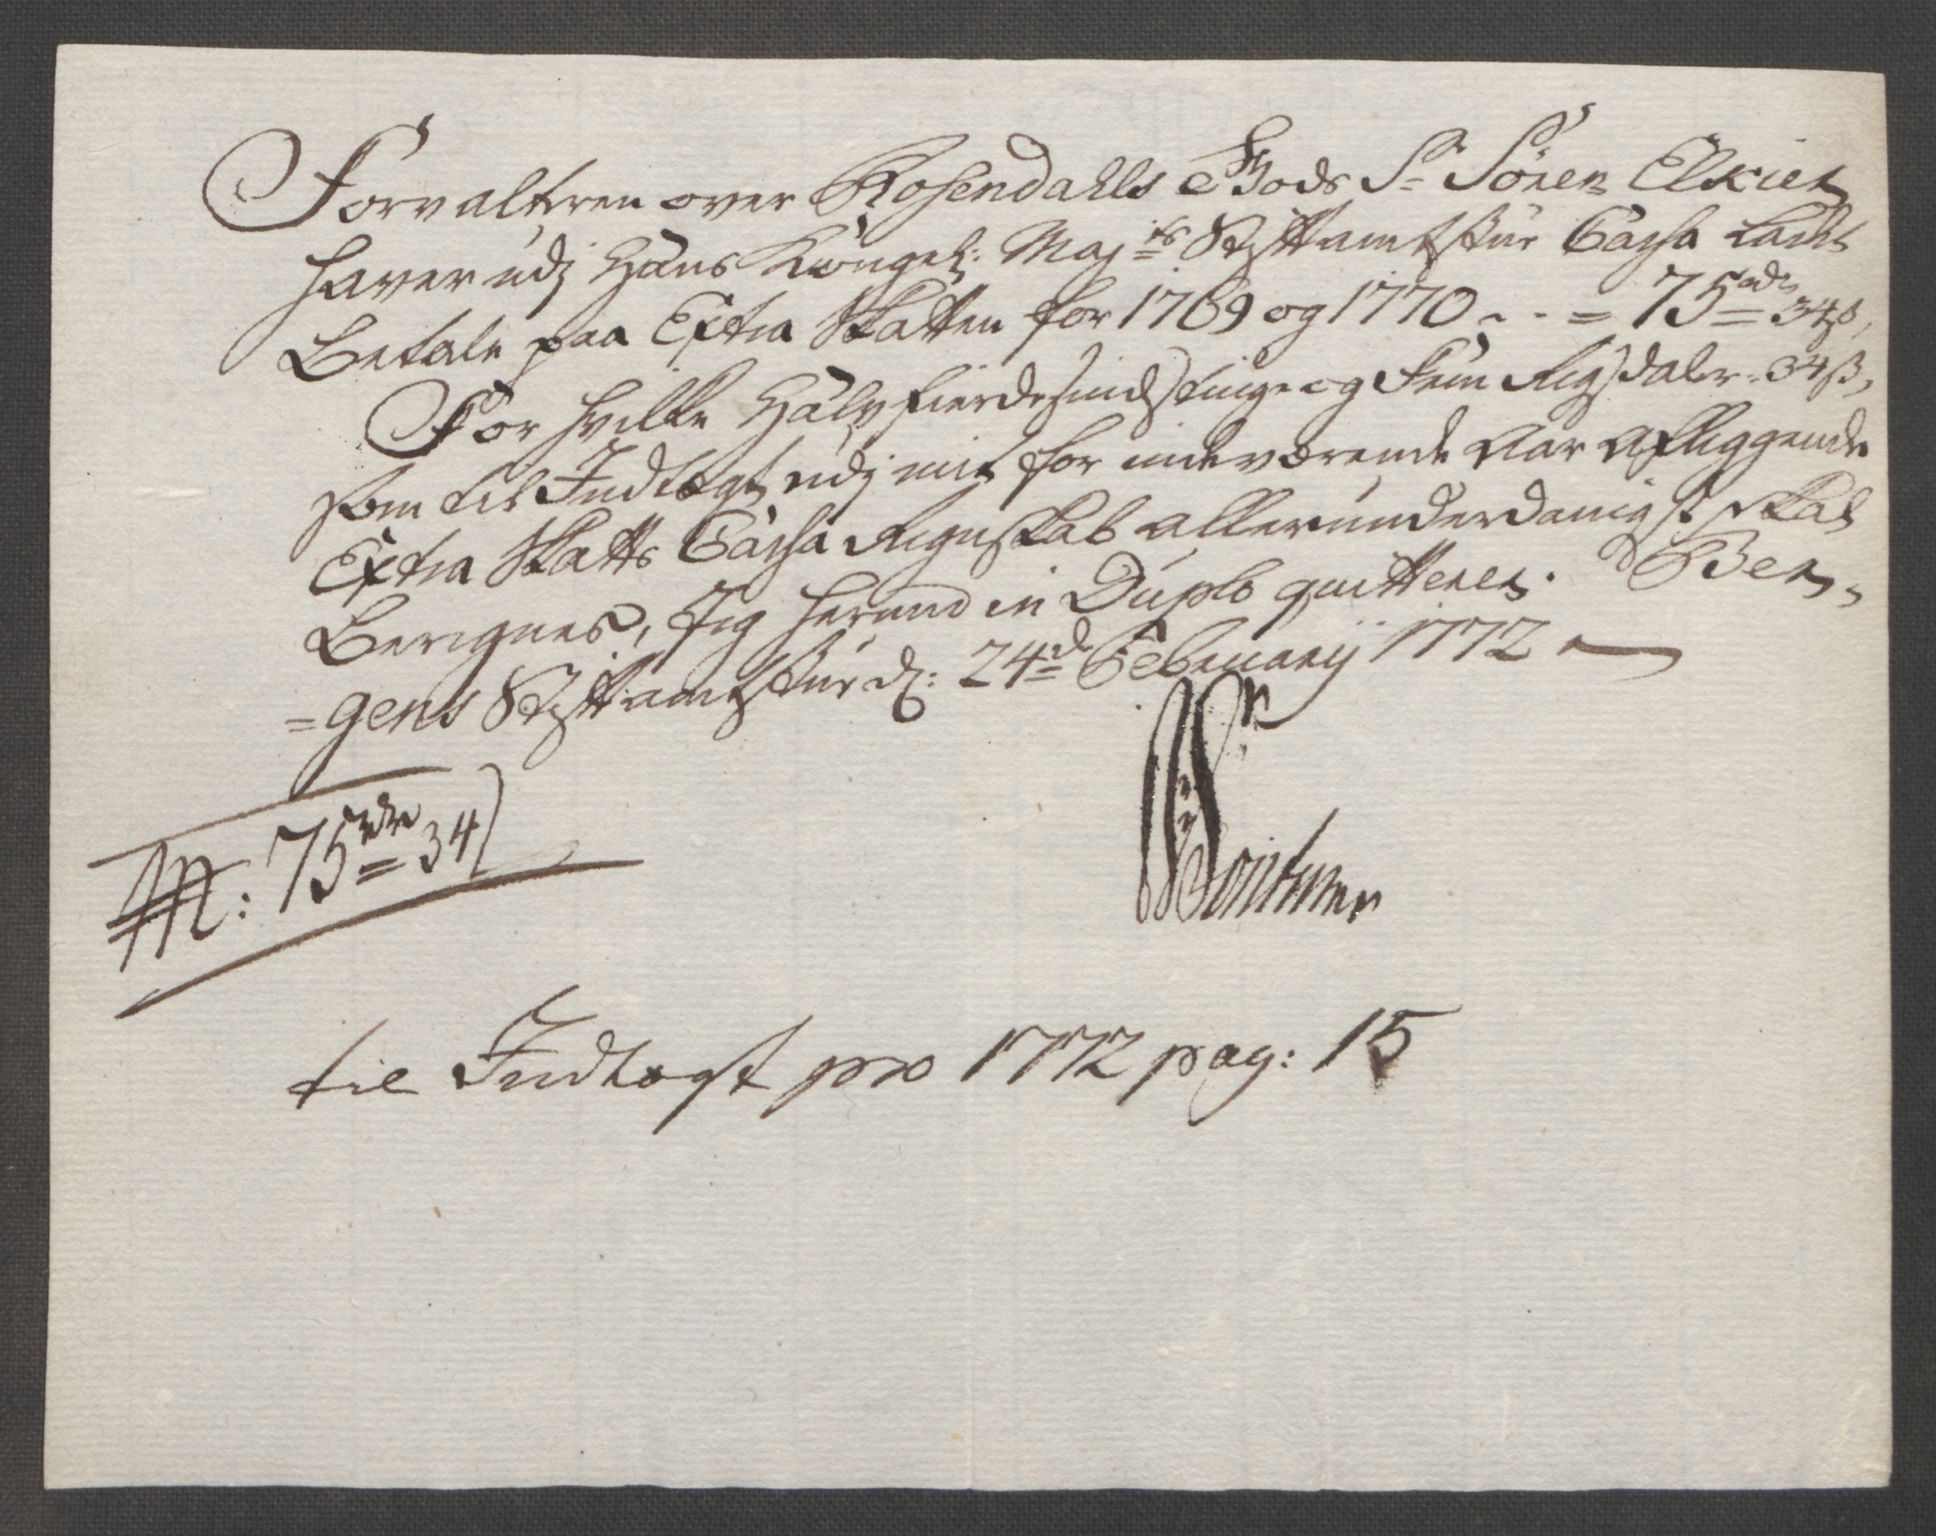 Forvalteren over Rosendahls Gods Sr Sören Elkier
haver udj Hans Kongel: Mayts Stiftamtstue Cassa ladt
Betale paa Extra Skatten for 1769 og 1770 - - = 75rd = 34ß,
For hvilke Halvfierdesindstiuge og Fem Rigsdaler 34ß,
som til Indtægt udj mit for indeværende Aar aflæggende
Extra Skatts Cassa Regnskab allerunderdanigst skal
Beregnes, Jeg herved in Duplo quitterer. Ber-
=gens Stiftamtstue d: 24de Februarij 1772
75rdr = 34
til Indtægt pro 1772 pag: 15